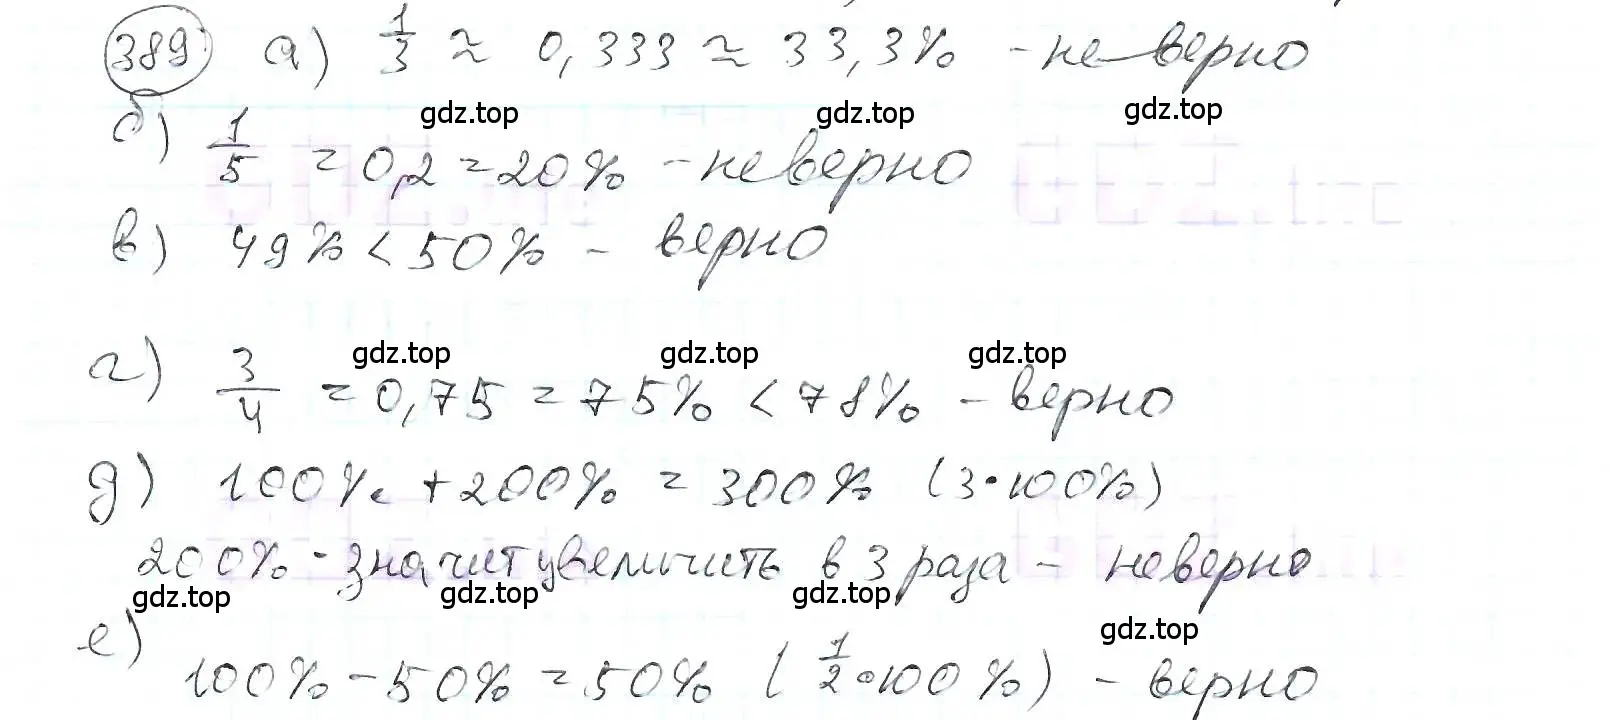 389 а) 1/3 ≈ 0,333 ≈ 33,3% - не верно
gdz.top gdz.top gdz.top
б) 1/5 = 0,2 = 20% - неверно
в) 49% < 50% - верно
gdz.top gdz.top gdz.top
г) 3/4 = 0,75 = 75% < 78% - верно
д) 100% + 200% = 300% (3·100%)
200% - значит увеличить в 3 раза - неверно
gdz.top gdz.top gdz.top
gdz.top
е) 100% - 50% = 50% (1/2 · 100%) - верно